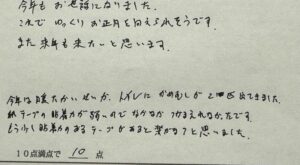 今年も お世話になりました。
これで ゆっくり お正月を迎えられそうです。
また来年も来たいと思います。
今年は暖かいせいか、トイレに かめむしが 2回出てきました。
紙テープの粘着力が弱いので なかなか つかまえれなかったです。
もう少し粘着力のあるテープがあると楽かな?と思いました。
10点満点で 10 点